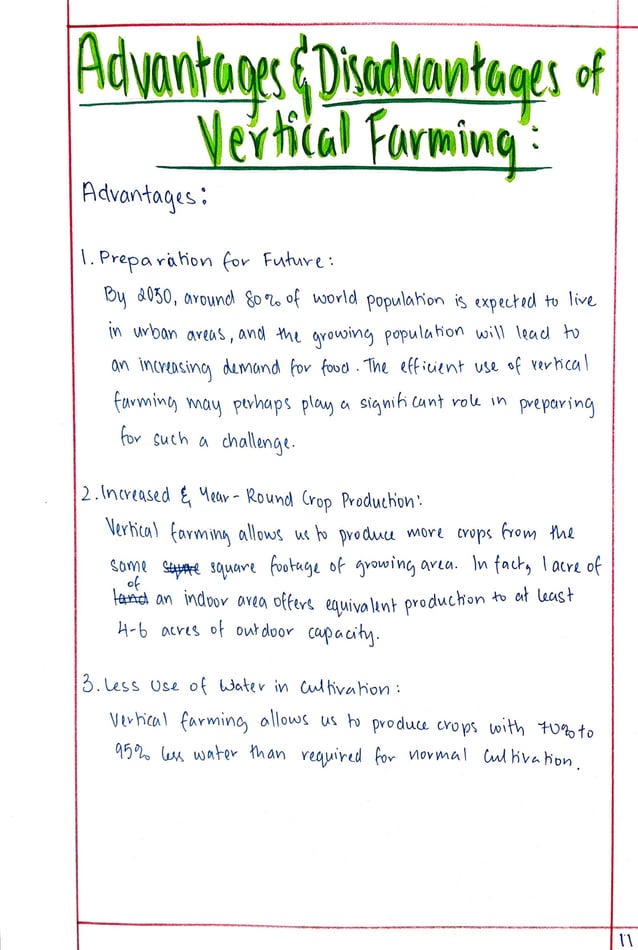 Advantages & Disadvantages of
Vertical Farming:
Advantages:
1. Preparation for Future:
By 2050, around 80% of world population is expected to live
in urban areas, and the growing population will lead to
an increasing demand for food. The efficient use of vertical
farming may perhaps play a significant role in preparing
for such a challenge.
2. Increased & Year-Round Crop Production:
Vertical farming allows us to produce more crops from the
same square footage of growing area. In fact, 1 acre of
of
land an indoor area offers equivalent production to at least
4-6 acres of outdoor capacity.
3. Less Use of Water in Cultivation:
Vertical farming allows us to produce crops with 70% to
95% less water than required for normal cultivation.
11